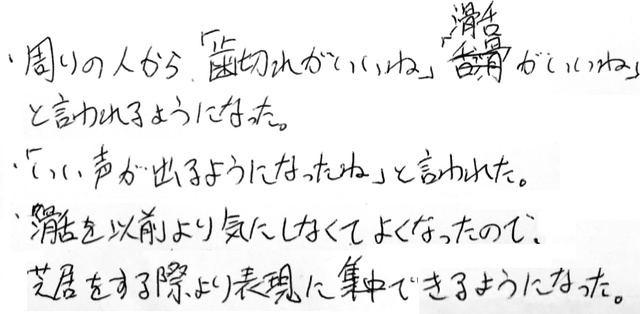 ・周りの人から「歯切れがいいね」「滑舌がいいね」
と言われるようになった。
・「いい声が出るようになったね」と言われた。
・滑舌を以前より気にしなくてよくなったので、
芝居をする際より表現に集中できるようになった。